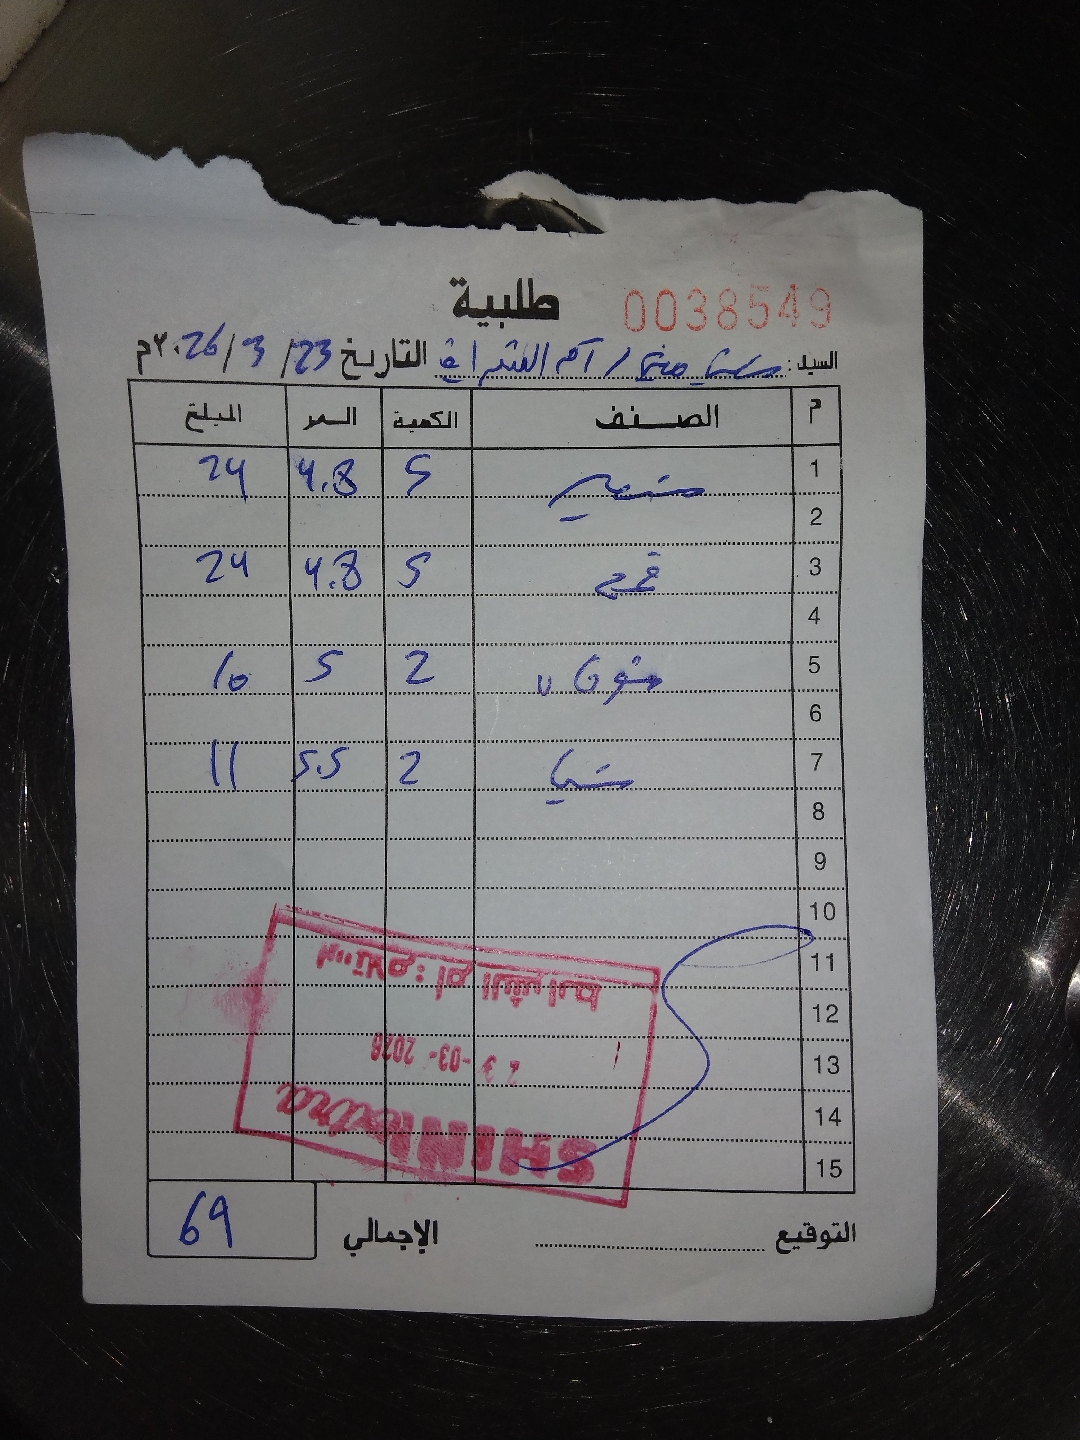 طلبية
0038549
السيد: التاريخ 23/3/٢٠26م
م الصنف الكمية السعر المبلغ
1 شعير 5 4.8 24
2
3 قمح 5 4.8 24
4
5 2 5 10
6
7 2 5.5 11
8
9
10
11
12
13
14
15
التوقيع الإجمالي 69
SHINI
23-03-2026